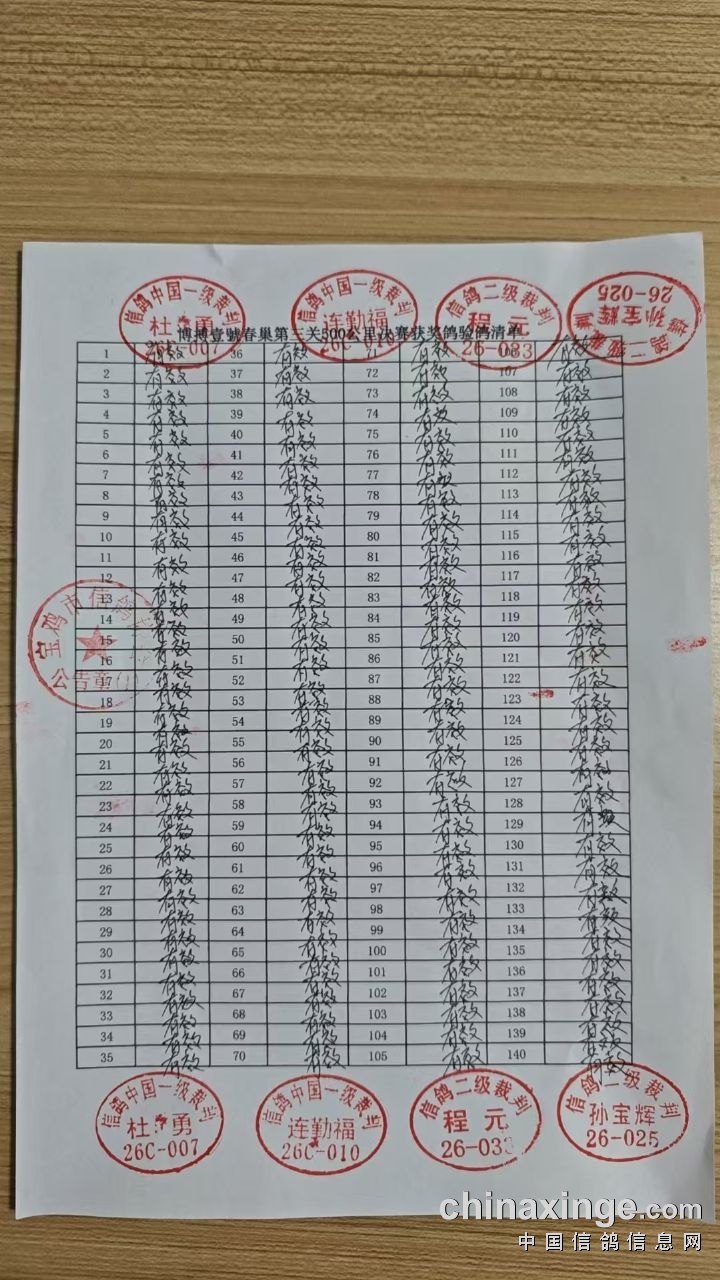 信鸽中国一级裁判 信鸽中国一级裁判 信鸽二级裁判 信鸽二级裁判
杜 勇 连勤福 程 元 孙宝辉
007 26C-010 26-033 26-025
博搏壹號春巢第三关500公里决赛获奖鸽验鸽清单
1 有效 36 有效 71 有效 106 有效
2 有效 37 有效 72 有效 107 有效
3 有效 38 有效 73 有效 108 有效
4 有效 39 有效 74 有效 109 有效
5 有效 40 有效 75 有效 110 有效
6 有效 41 有效 76 有效 111 有效
7 有效 42 有效 77 有效 112 有效
8 有效 43 有效 78 有效 113 有效
9 有效 44 有效 79 有效 114 有效
10 有效 45 有效 80 有效 115 有效
11 有效 46 有效 81 有效 116 有效
12 有效 47 有效 82 有效 117 有效
13 有效 48 有效 83 有效 118 有效
14 有效 49 有效 84 有效 119 有效
15 有效 50 有效 85 有效 120 有效
16 有效 51 有效 86 有效 121 有效
17 有效 52 有效 87 有效 122 有效
18 有效 53 有效 88 有效 123 有效
19 有效 54 有效 89 有效 124 有效
20 有效 55 有效 90 有效 125 有效
21 有效 56 有效 91 有效 126 有效
22 有效 57 有效 92 有效 127 有效
23 有效 58 有效 93 有效 128 有效
24 有效 59 有效 94 有效 129 有效
25 有效 60 有效 95 有效 130 有效
26 有效 61 有效 96 有效 131 有效
27 有效 62 有效 97 有效 132 有效
28 有效 63 有效 98 有效 133 有效
29 有效 64 有效 99 有效 134 有效
30 有效 65 有效 100 有效 135 有效
31 有效 66 有效 101 有效 136 有效
32 有效 67 有效 102 有效 137 有效
33 有效 68 有效 103 有效 138 有效
34 有效 69 有效 104 有效 139 有效
35 有效 70 有效 105 有效 140 有效
宝鸡市信鸽
公告章(1)
信鸽中国一级裁判 信鸽中国一级裁判 信鸽二级裁判 信鸽二级裁判
杜 勇 连勤福 程 元 孙宝辉
26C-007 26C-010 26-033 26-025
chinaxinge.com
中国信鸽信息网